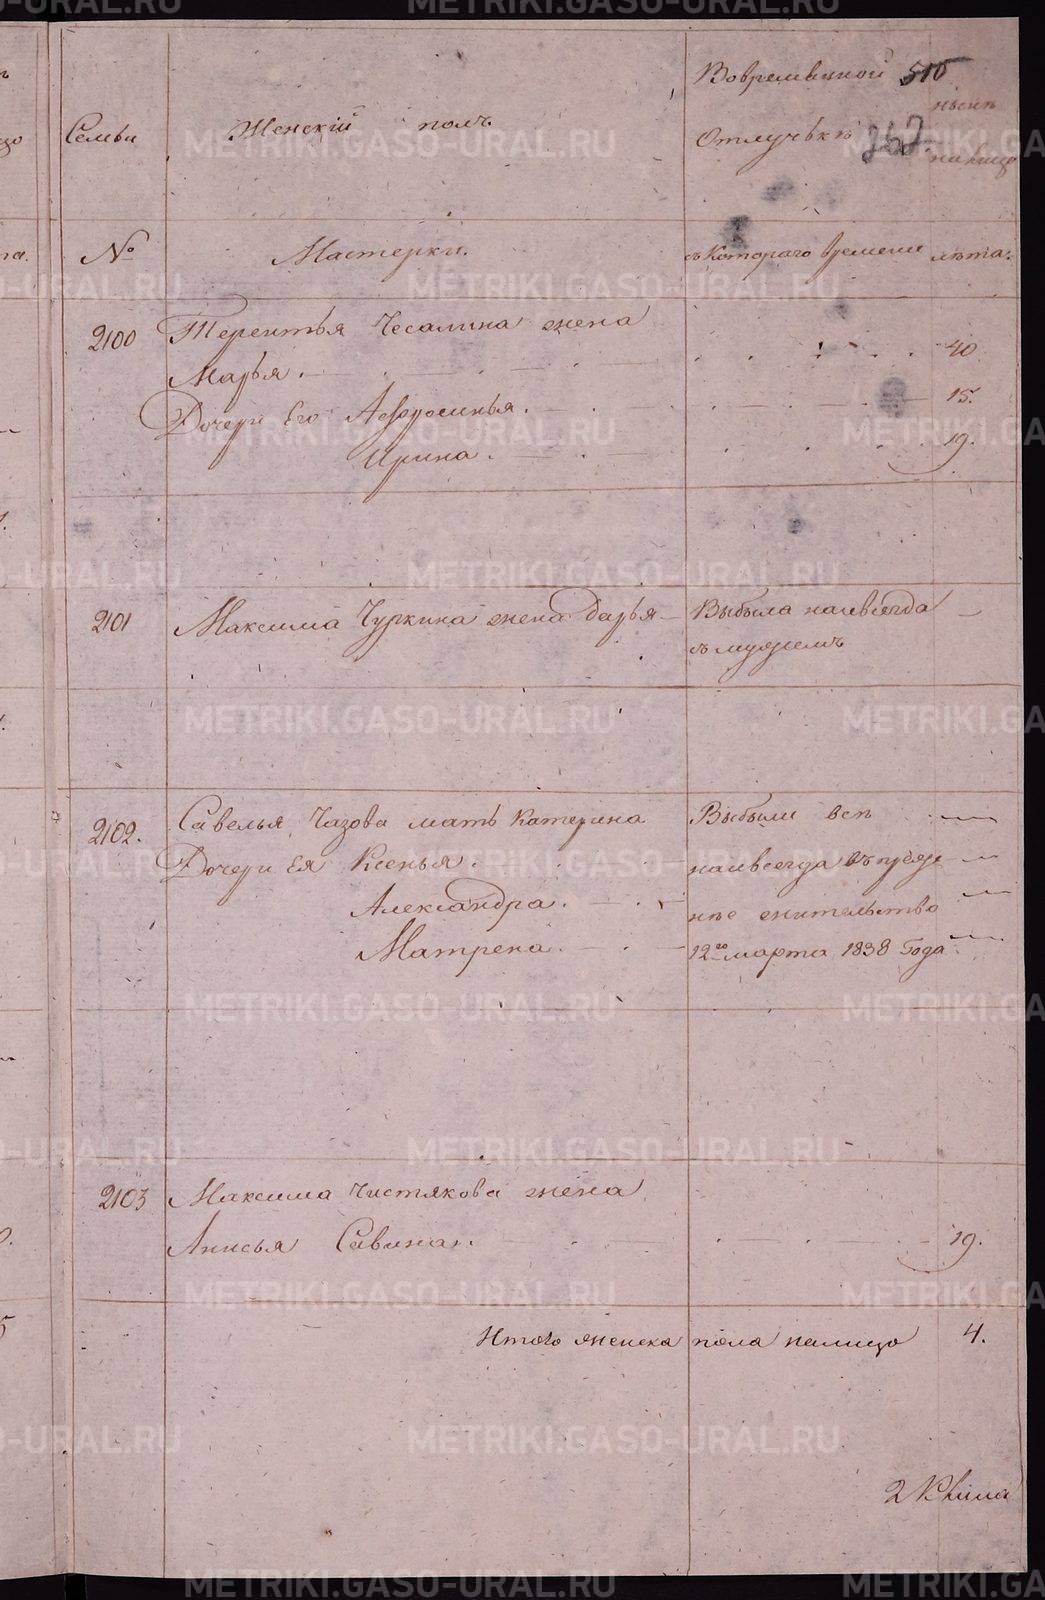 Вовременной 515
нынѣ
Семьи Женскій полъ Отлучькѣ 262. налицо
№ Мастерки. съ Котораго времени лѣта.
2100 Терентья Чесалина жена
Марья. 40
Дочери Его Афросинья. 15.
Ирина. 19.
2101 Максима Чуркина жена Дарья Выбыла на всегда
съ мужемъ
2102. Савелья Чазова мать Катерина Выбыли всѣ
Дочери Ея Ксенья. навсегда въ преж
Александра. нѣе жительство
Матрена. 12го марта 1838 Года.
2103 Максима Чистякова жена
Анисья Савина. 19.
Итого женска пола налицо 4.
METRIKI.GASO-URAL.RU